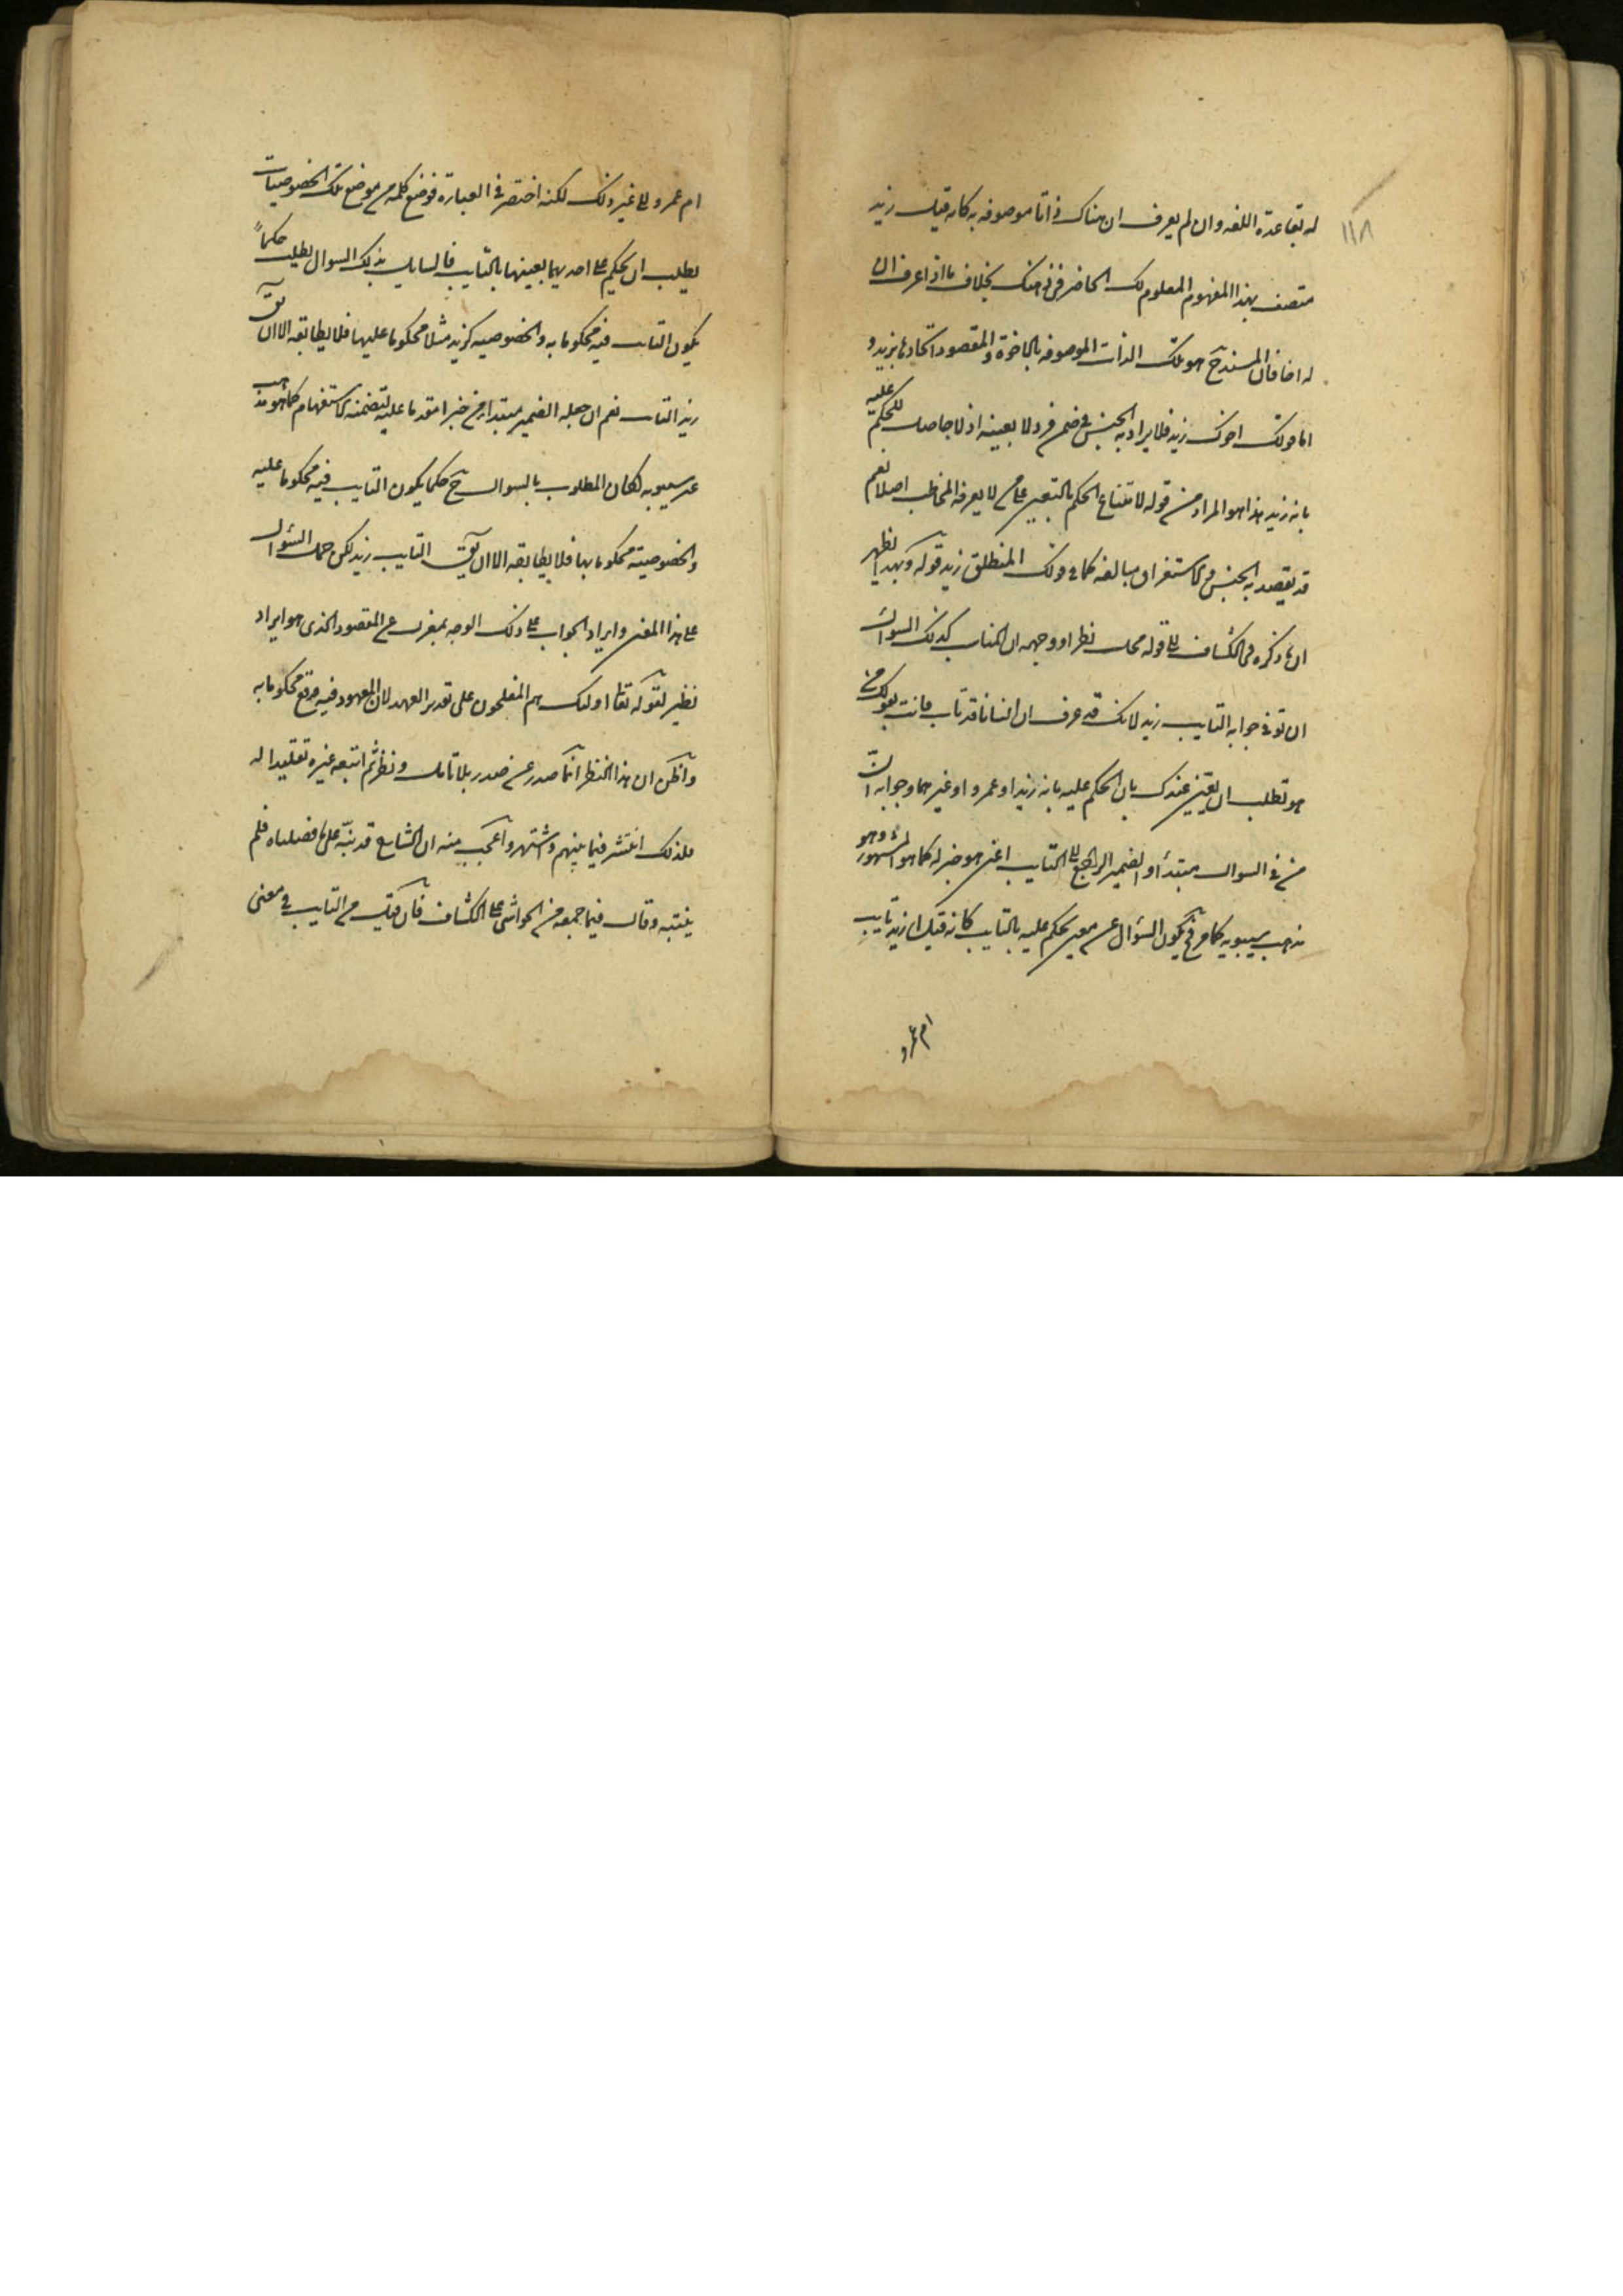 ١١٨
له بقاعدة اللغه وان لم يعرف ان هناك ذاتا موصوفه به كانه قيل زيد
متصف بهذا المفهوم المعلوم لك الحاضر فى ذهنك بخلاف ما اذا عرف ان
له اخا فان المسند ح هو تلك الذات الموصوفه بالاخوة والمقصود اتحادها بزيد و
اما قولك اخوك زيد فلا يراد به الجنس فى ضمن فرد لا بعينه اذ لا حاصل للحكم عليه
بانه زيد هذا هو المراد من قوله لامتناع الحكم بالتعيين على من لا يعرفه المخاطب اصلا نعم
قد يقصد به الجنس والاستغراق مبالغه كما فى قولك المنطلق زيد قوله وبهذا يظهر
ان ما ذكره فى الكشاف الى قوله محل نظر اوردوجهه ان المناسب لذلك السوال
ان تق فى جوابه التايب زيد لانك قد عرف ان انسانا قد تاب فانت بقولك من
هو تطلب ان يتعين عندك بان الحكم عليه بانه زيد او عمرو او غيرهما وجوابه ان
من فى السوال مبتدأ والضمير الراجع الى التايب اعنى هو خبر له كما هو المشهور وهو
مذهب سيبويه كما مر فح يكون السؤال عن معين يحكم عليه بالتايب كانه قيل ازيد تايب
ام عمرو
ام عمرو الى غير ذلك لكنه اختصر فى العبارة فوضع كلمه من موضع تلك الخصوصيات
يطلب ان يحكم على احديهما بعينها بالتايب فالسايل بذلك السوال يطلب حكماً
يكون التايب فيه محكوما به والخصوصيه كزيد مثلا محكوما عليها فلا يطابقه الا ان يق
زيد التايب نعم ان جعله الضمير مبتدا ومن خبرا مقدما عليه لتضمنه الاستفهام كما هو مذهب
غير سيبويه لكان المطلوب بالسوال ح حكما يكون التايب فيه محكوما عليه
والخصوصيته محكوما بها فلا يطابقه الا ان يق التايب زيد لكن حمل السؤال
على هذا المعنى وايراد الجواب على ذلك الوجه بمعزل عن المقصود الذى هو ايراد
نظير لقوله تعا اولئك هم المفلحون على تقدير العهد لان المعهود فيه وقع محكوما به
واظن ان هذا النظر انما صدر عن صدر بلا تامل ونظر ثم اتبعه غيره تقليدا له
فلذلك انتشر فيما بينهم واشتهر واعجب منه ان الشارح قد نبّه على ما فصلناه فلم
ينتبه وقال فيما جمعه من الحواشى على الكشاف فان قيل من التايب فى معنى